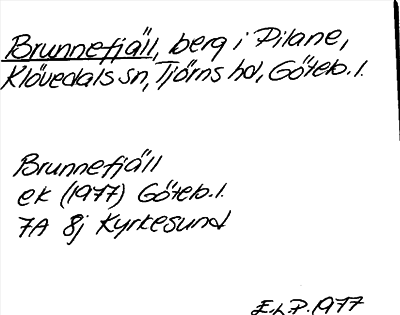 Brunnefjäll, berg i Pilane,
Klövedals sn, Tjörns hd, Göteb. l.
Brunnefjäll
ek (1977) Göteb. l.
7A 8j Kyrkesund
E.L.P. 1977